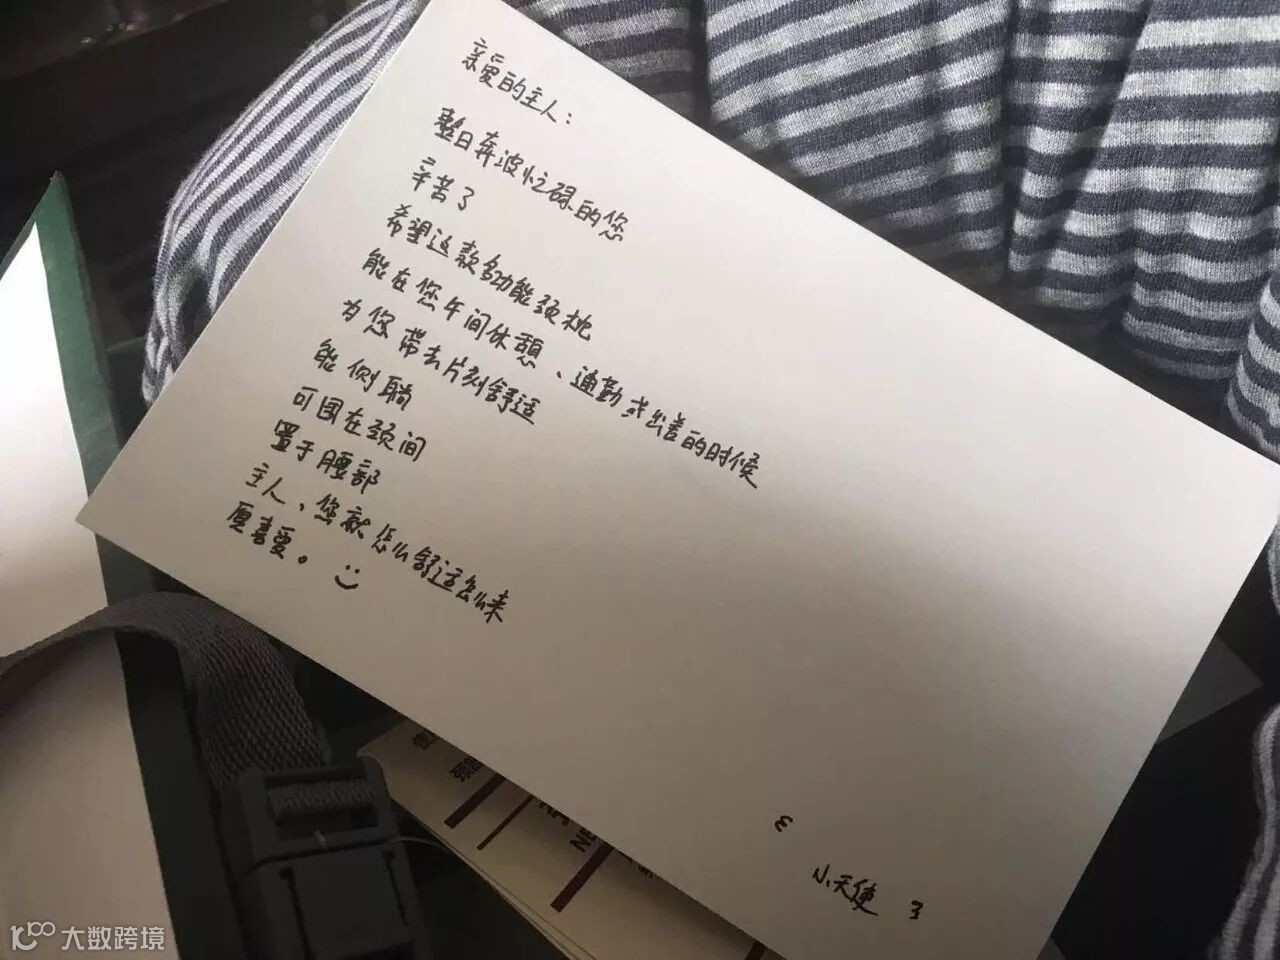 亲爱的主人：
整日奔波忙碌的您
辛苦了
希望这款多功能颈枕
能在您午间休憩、通勤或出差的时候
为您带去片刻舒适
能侧躺
可围在颈间
置于腰部
主人、您就怎么舒适怎么来
愿喜爱。
小天使
大数跨境